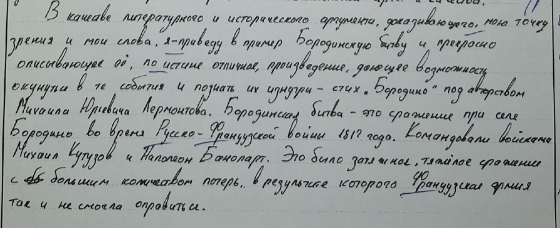 В качесве литературного и исторического аргумента, доказивающего, мою точку
зрения и мои слова, я-приведу в пример Бородинскую битву и прекрасно
описывающее её, по истине отличное, произведение, дающее возможность
окунутся в те события и познать их изнутри - стих "Бородино" под авторством
Михаила Юрьевича Лермонтова. Бородинская битва - это сражение при селе
Бородино во время Русско-Французской войни 1812 года. Командовали войсками
Михаил Кутузов и Наполеон Банопарт. Это было затяжное, тяжёлое сражение
с большим количеством потерь, в результате которого Французская армия
так и не смогла оправиться.